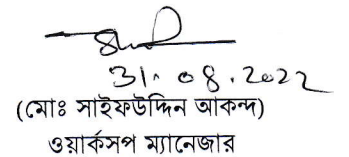 31.08.2022
(মোঃ সাইফউদ্দিন আকন্দ)
ওয়ার্কসপ ম্যানেজার